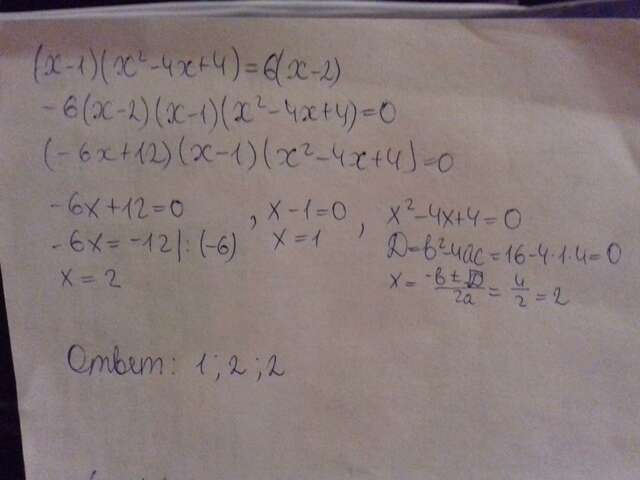 (x-1)(x²-4x+4)=6(x-2)
-6(x-2)(x-1)(x²-4x+4)=0
(-6x+12)(x-1)(x²-4x+4)=0
-6x+12=0 , x-1=0 , x²-4x+4=0
-6x=-12|:(-6) x=1 D=b²-4ac=16-4·1·4=0
x=2 x=(-b±√D)/2a=4/2=2
Ответ: 1;2;2